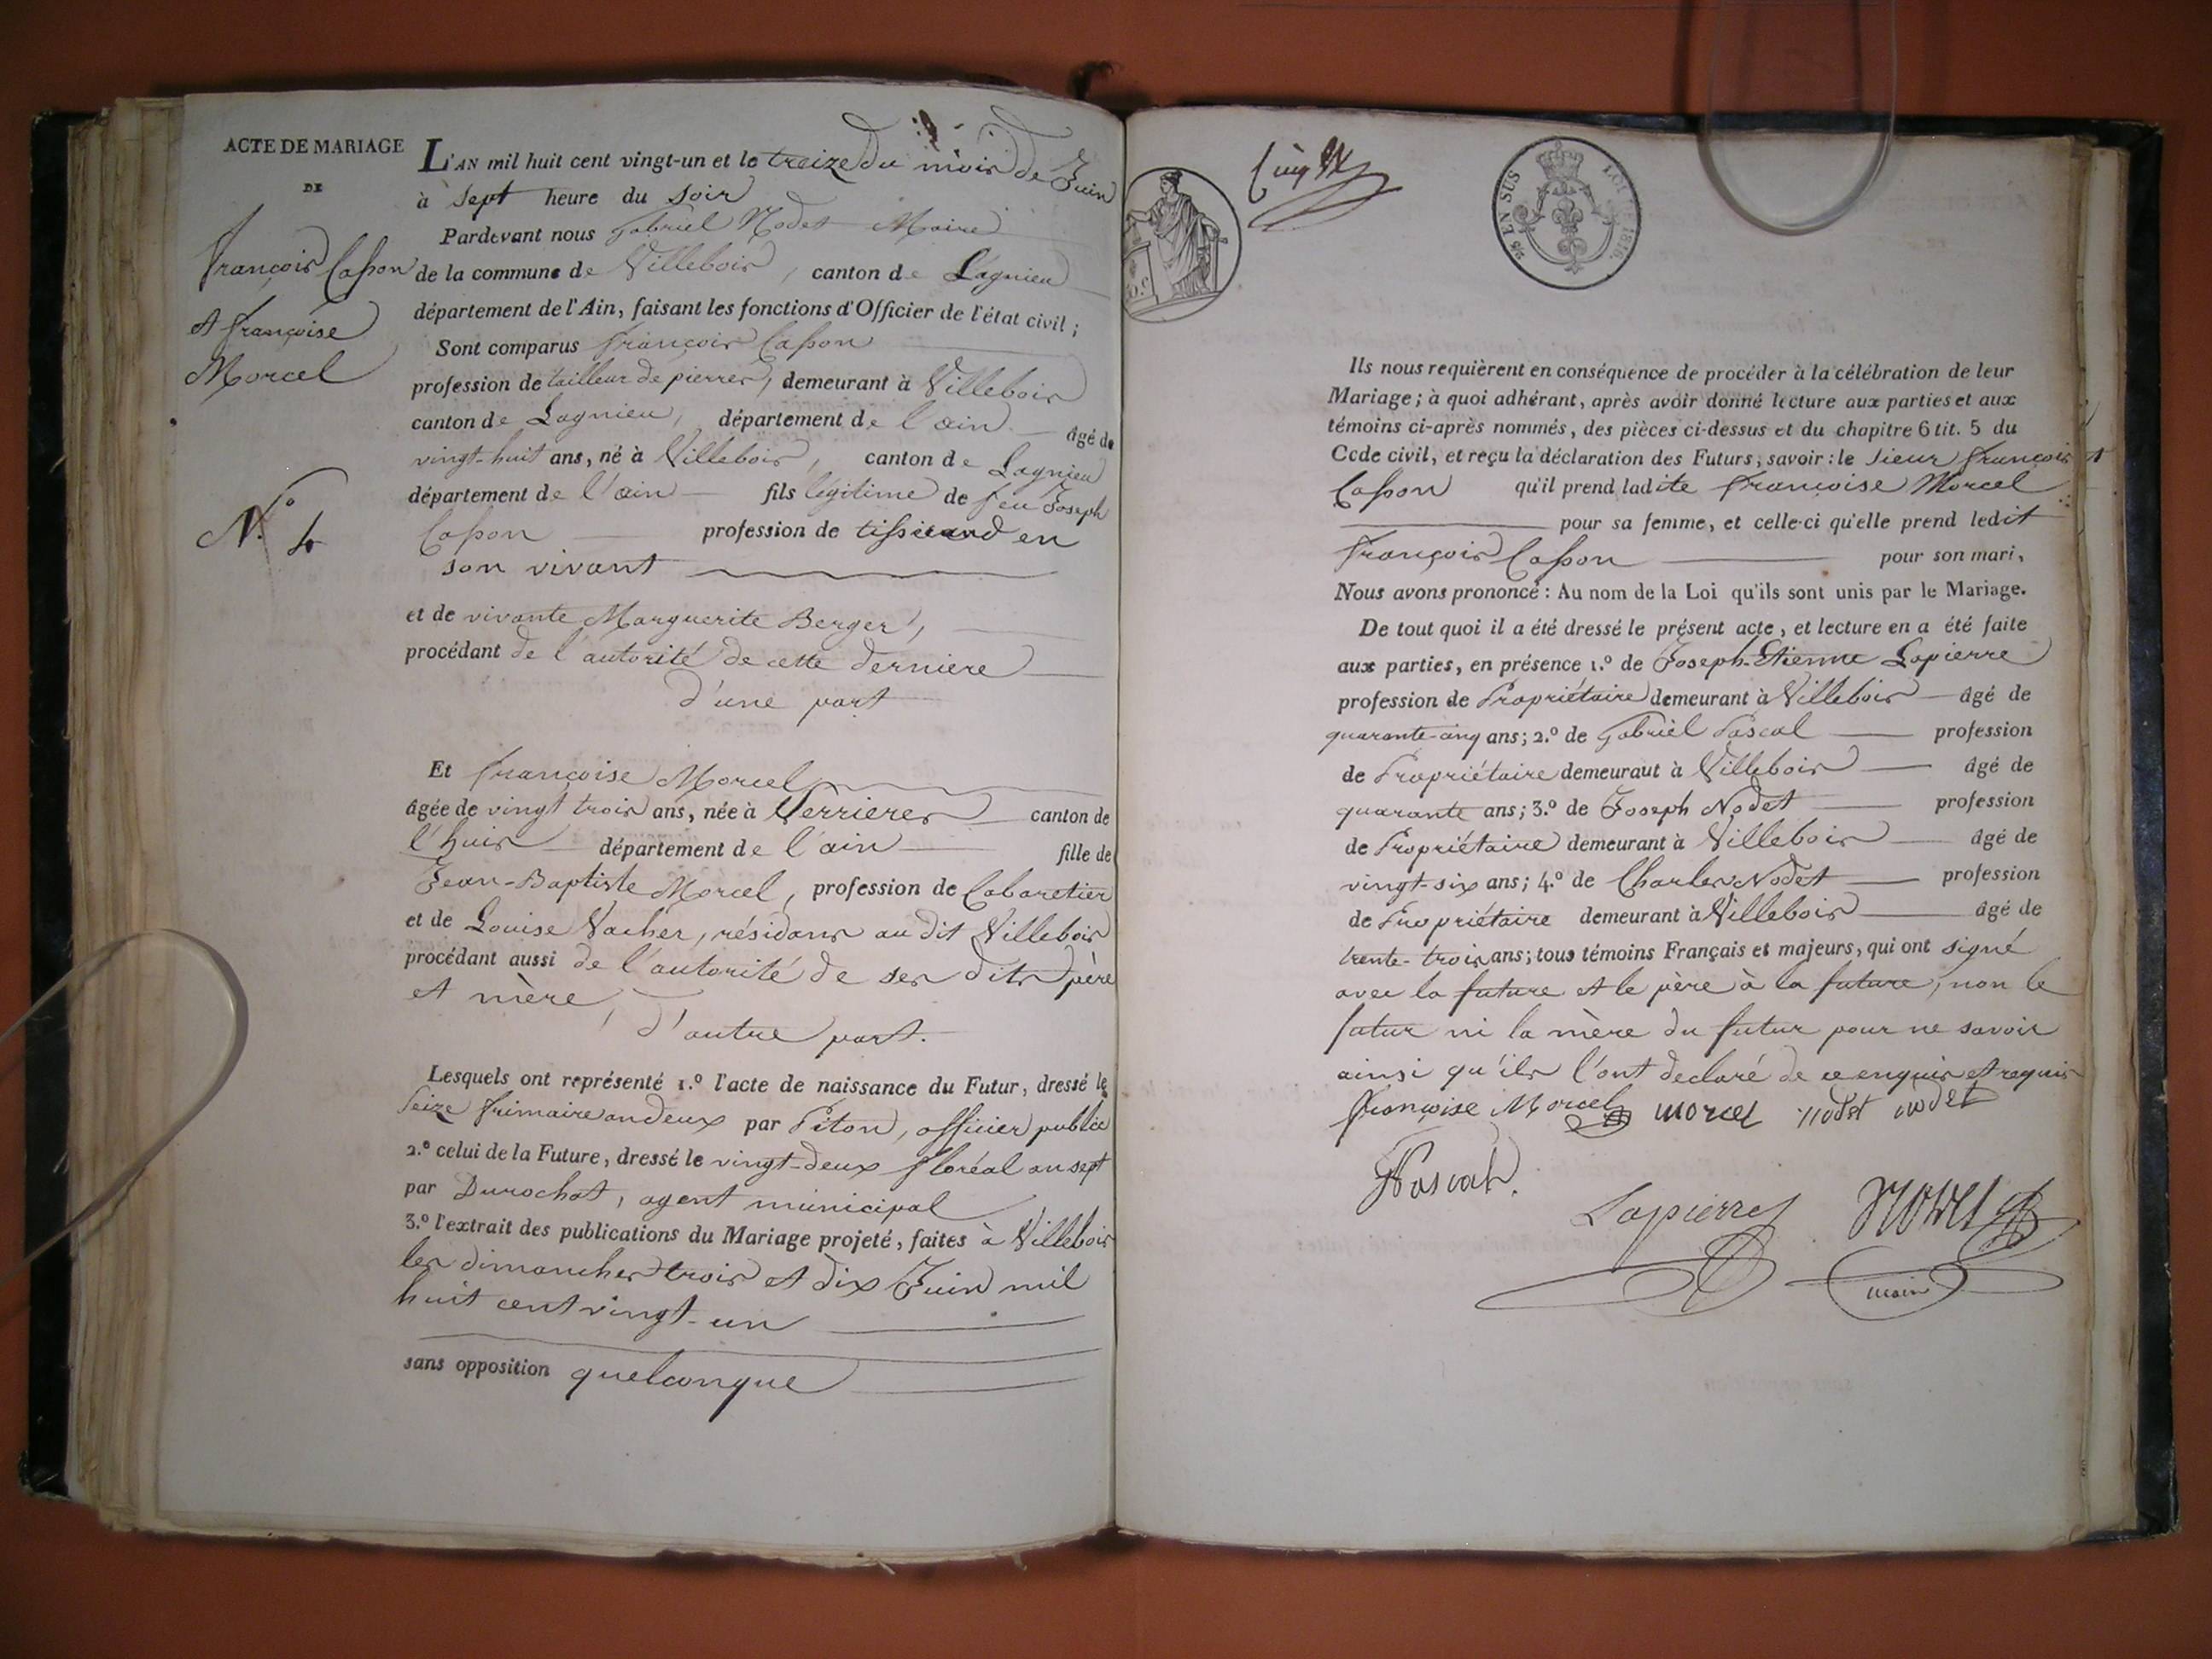 ACTE DE MARIAGE
DE
François Casson
et françoise
Morcel
N.º 4
L'AN mil huit cent vingt-un et le treize du mois de Juin
à sept heure du soir
Pardevant nous Gabriel Nodet Maire
de la commune de Villebois, canton de Lagnieu
département de l'Ain, faisant les fonctions d'Officier de l'état civil;
Sont comparus françois Casson
profession de tailleur de pierres, demeurant à Villebois
canton de Lagnieu, département de l'ain âgé de
vingt-huit ans, né à Villebois, canton de Lagnieu
département de l'ain fils légitime de feu Joseph
Casson profession de tissierand en
son vivant
et de vivante Marguerite Berger,
procédant de l'autorité de cette derniere
d'une part
Et françoise Morcel
âgée de vingt trois ans, née à Serrieres canton de
l'huis département de l'ain fille de
Jean-Baptiste Morcel, profession de Cabaretier
et de Louise Vacher, résidans au dit Villebois
procédant aussi de l'autorité de ses dits père
et mère, d'autre part.
Lesquels ont représenté 1.º l'acte de naissance du Futur, dressé le
seize frimaire an deux par Piton, officier public
2.º celui de la Future, dressé le vingt-deux floréal an sept
par Durochat, agent municipal
3.º l'extrait des publications du Mariage projeté, faites à Villebois
les dimanches trois et dix Juin mil
huit cent vingt-un
sans opposition quelconque
25 EN SUS LOI DE 1816.
Ils nous requièrent en conséquence de procéder à la célébration de leur
Mariage; à quoi adhérant, après avoir donné lecture aux parties et aux
témoins ci-après nommés, des pièces ci-dessus et du chapitre 6 tit. 5 du
Code civil, et reçu la déclaration des Futurs, savoir: le sieur françois
Casson qu'il prend ladite françoise Morcel
pour sa femme, et celle-ci qu'elle prend ledit
françois Casson pour son mari,
Nous avons prononcé: Au nom de la Loi qu'ils sont unis par le Mariage.
De tout quoi il a été dressé le présent acte, et lecture en a été faite
aux parties, en présence 1.º de Joseph-Etienne Lapierre
profession de Propriétaire demeurant à Villebois âgé de
quarante-cinq ans; 2.º de Gabriel Pascal profession
de Propriétaire demeurant à Villebois âgé de
quarante ans; 3.º de Joseph Nodet profession
de Propriétaire demeurant à Villebois âgé de
vingt-six ans; 4.º de Charles Nodet profession
de Propriétaire demeurant à Villebois âgé de
trente-trois ans; tous témoins Français et majeurs, qui ont signé
avec la future et le père à la future, non le
futur ni la mère du futur pour ne savoir
ainsi qu'ils l'ont declaré de ce enquis et requis
françoise Morcel morcel nodet nodet
Pascal.
Lapierre Nodet
maire